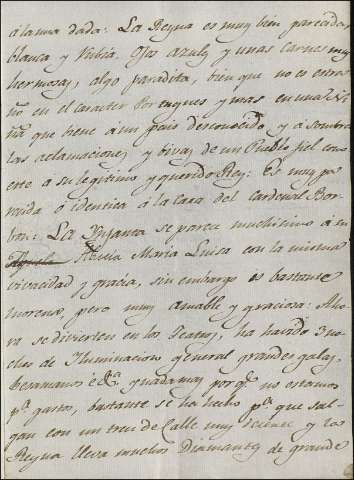 à la una dada: La Reyna es muy bien parecida,
blanca y Rubia. Ojos azules y unas carnes muy
hermosas, algo paradita, bien que no es estra
ño en el caracter Portugues y mas en una Ni
ña que biene à un pais desconocido y à
las aclamaciones y bivas de un Pueblo fiel como
este à su legitimo y querido Rey: Es muy pa
recida ó identica à la cara del Cardenal Bor
bon: La Ynfanta se parece muchisimo à su
Abuela Maria Luisa con la misma
vivacidad y gracia, sin embargo es bastante
morena, pero muy amable y graciosa: Aho
ra se divierten en los Teatros, ha havido 3 no
ches de Iluminacion general grandes galas,
besamanos &ª y nada mas porqᵉ no estamos
pª gastos, bastante se ha hecho pª que sal
gan con un tren de Calle muy decente y la
Reyna lleva muchos Diamantes de grande